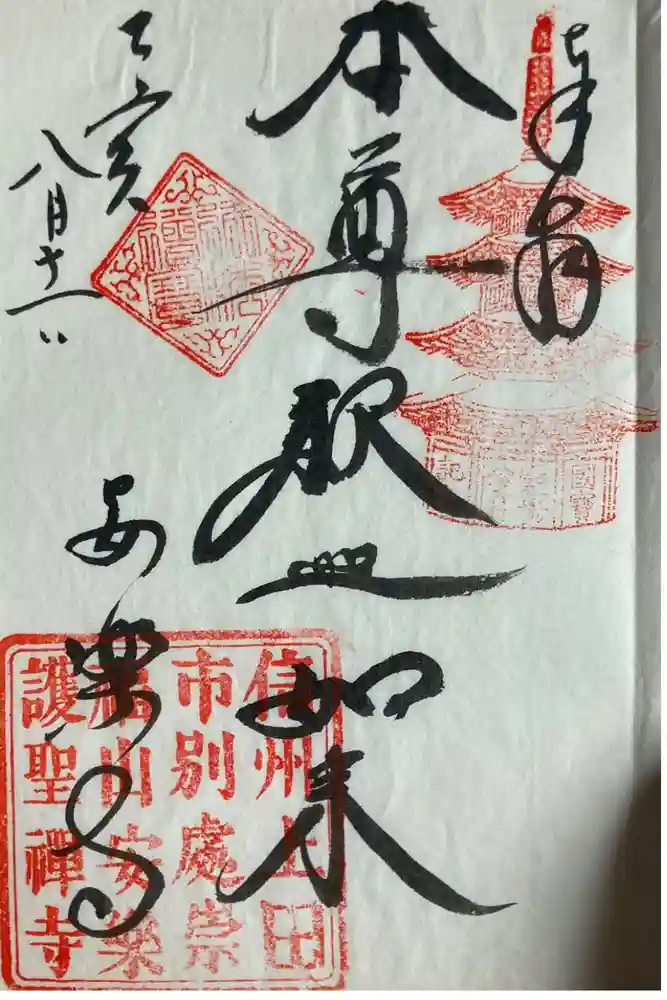 奉拝
國寶
記
本尊釈迦如来
己亥
八月十一日
安楽寺
信州上田
市別處崇
福山安樂
護聖禪寺